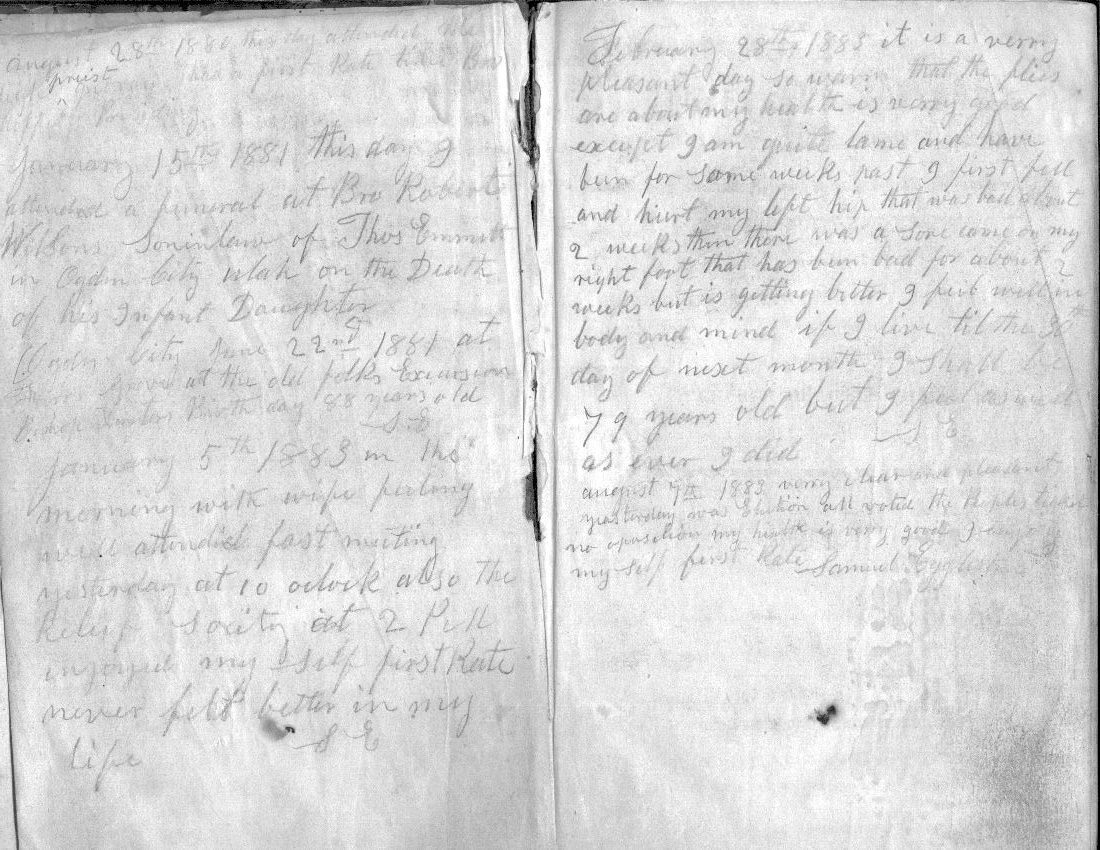 August 28th 1880 this day attended the
priest
had a first Rate time Bro
January 15th 1881 this day I
attended a funeral at Bro Roberts
Wilsons Soninlaw of Thos Emmitt
in Ogden City Utah on the Death
of his Infant Daughter
Ogden City June 22nd 1881 at
grove at the old folks Excursion
Birth day 88 years old
S E
January 5th 1883 in the
morning with wife feeling
well attended fast meeting
yesterday at 10 oclock also the
Relief Society at 2 P M
injoyed my self first Rate
never felt better in my
S E
life
February 28th 1883 it is a verry
pleasant day so warm that the flies
are about my health is verry good
except I am quite lame and have
been for some weeks past I first fell
and hurt my left hip that was bad about
2 weeks then there was a Sore came on my
right foot that has been bad for about 2
weeks but is getting better I feel well in
body and mind if I live til the 30th
day of next month I Shall be
79 years old but I feel as well
S E
as ever I did
august 7th 1883 verry clear and pleasant
yeasterday was Election all voted the Peoples ticket
no oposition my health is very good I enjoy
my self first Rate Samuel Eggleston